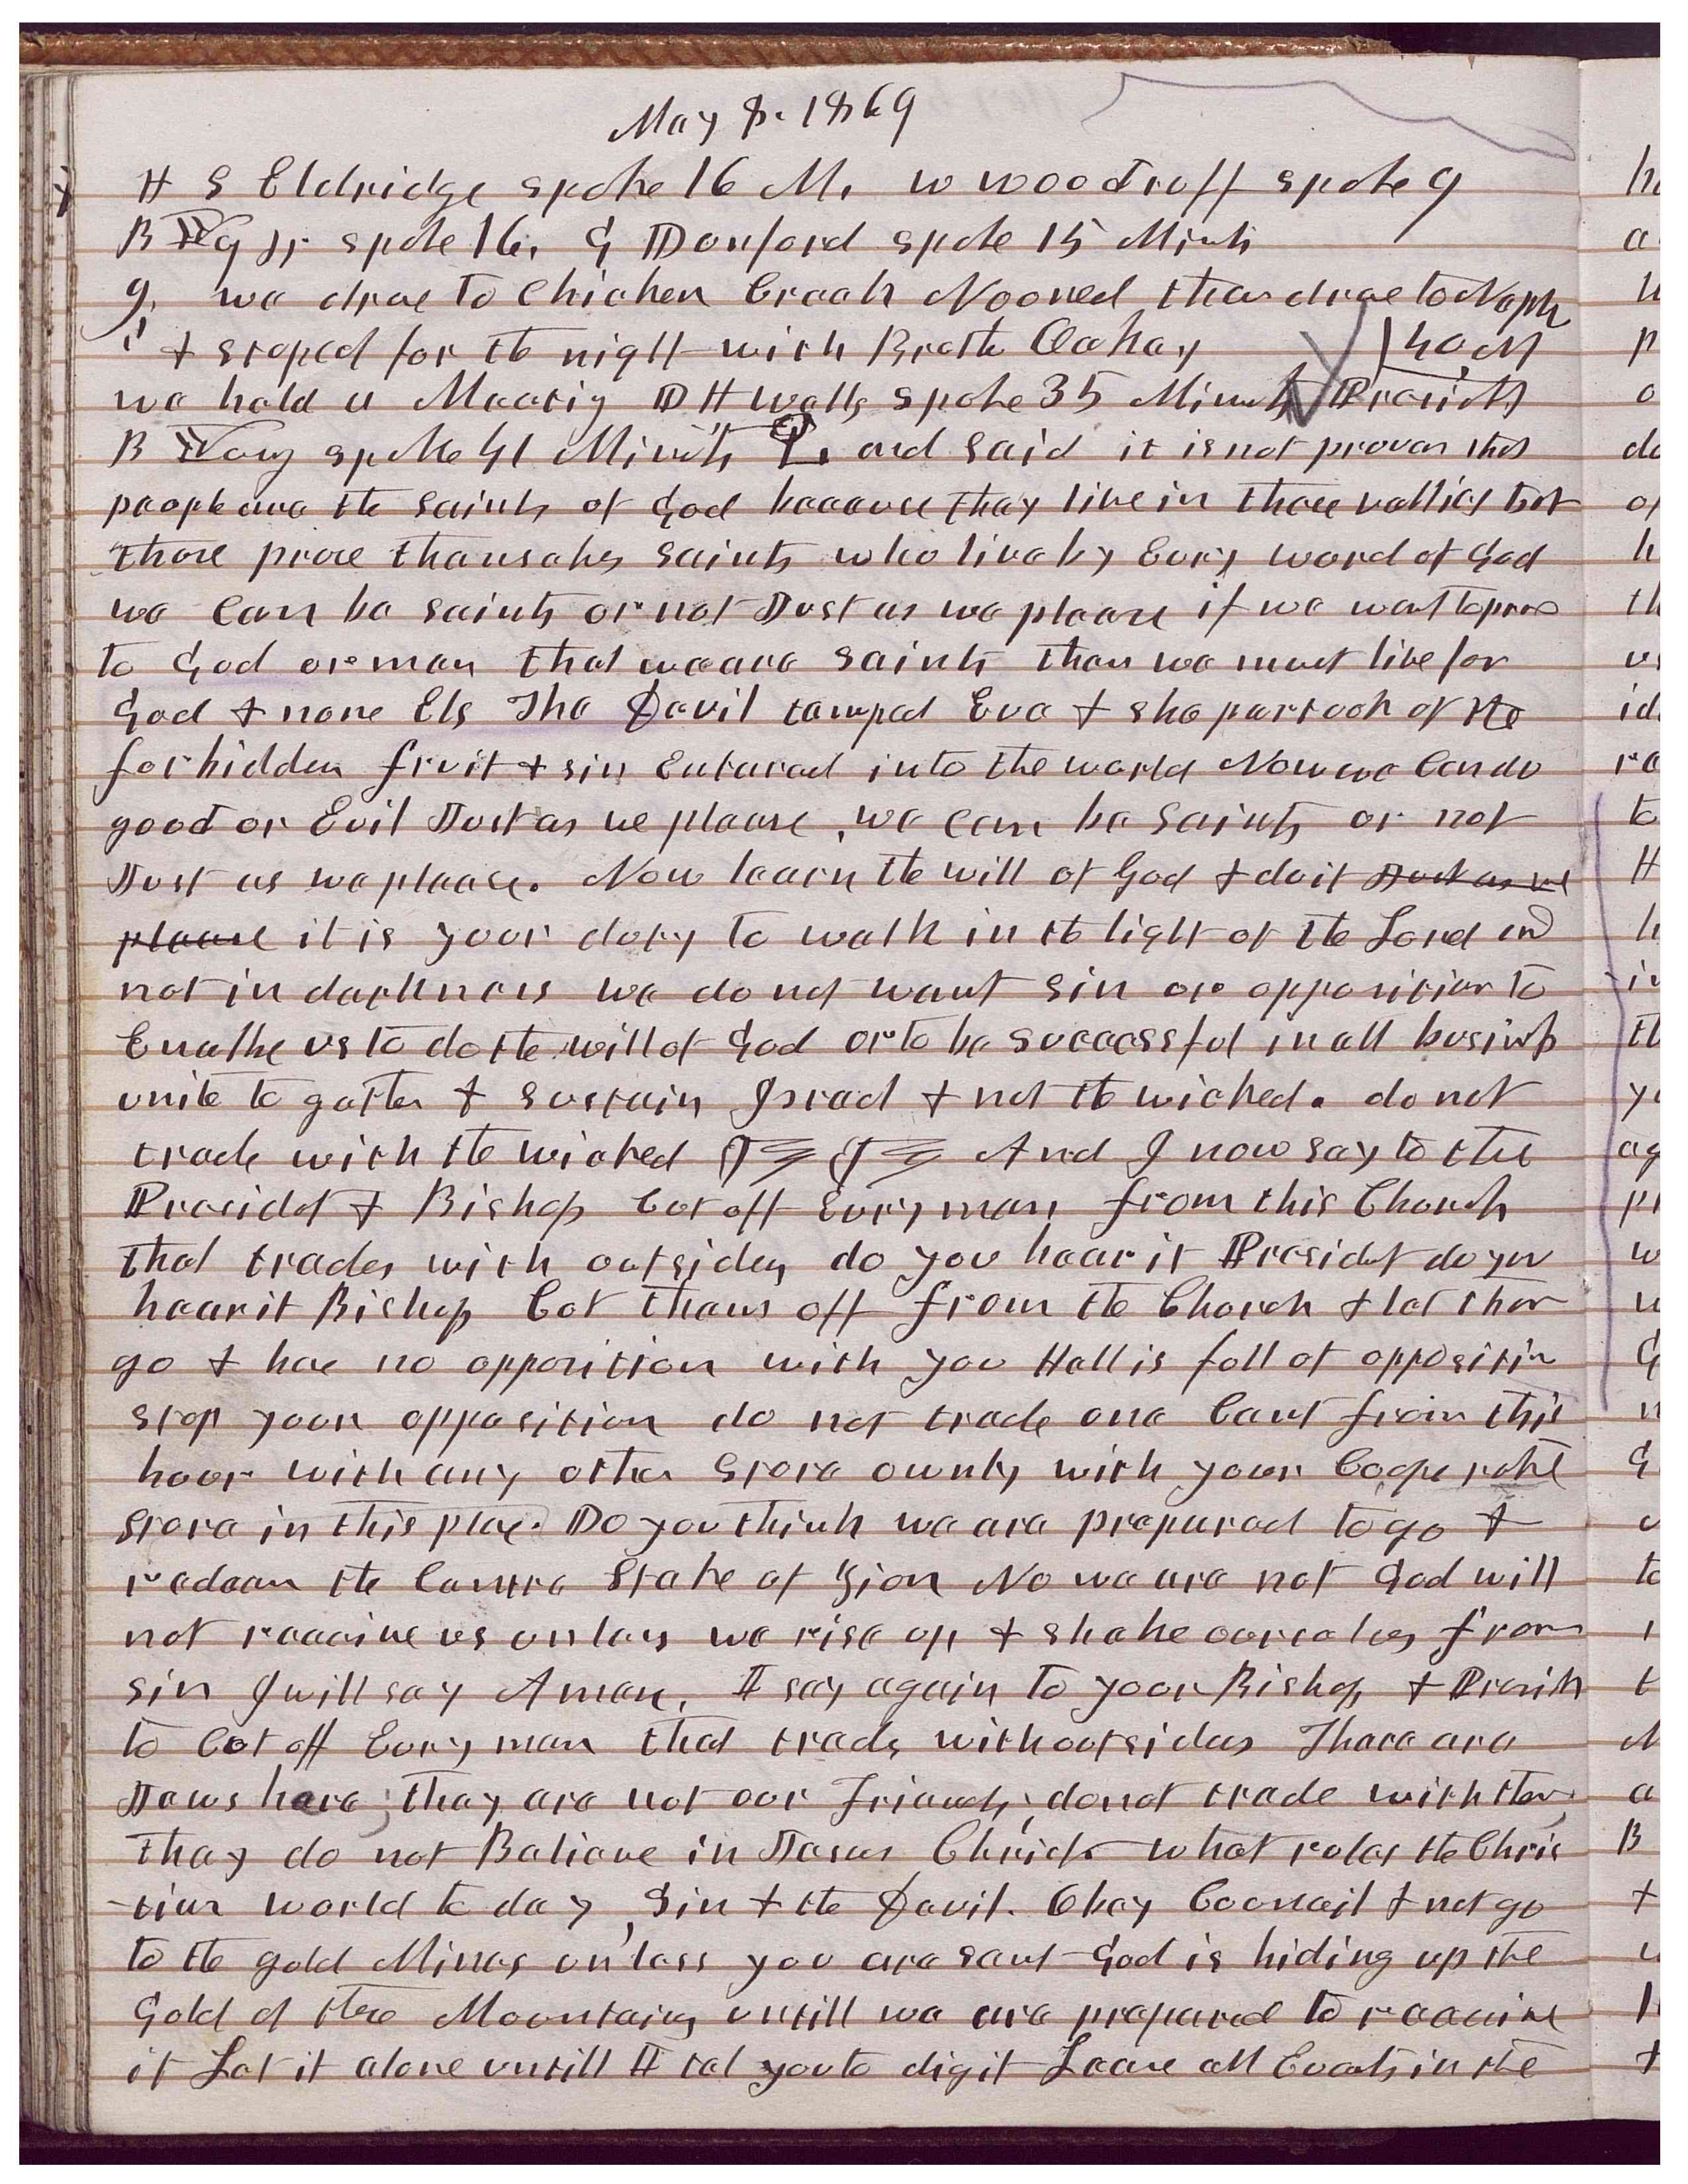 May 8. 1869
H S Eldridge spoke 16 M. W Woodruff spoke 9
B Yg Jr spoke 16. G Dunford spoke 15 Minuts
9. we drove to Chicken Creek Nooned then drove to Neph
& stoped for the night with Brother 40 M
we held a Meeting D H Wells spoke 35 Minuts Presidt
B Young spoke 41 Minuts and said it is not proven that
people are the Saints of God because they live in these vallies but
those prove themselves Saints who live by Evry word of God
we Can be Saints or not Just as we please if we want to prove
to God or man that we are Saints then we must live for
God & none Els The Devil temped Eve & she partook of the
forbidden fruit & sin entered into the world Now we Can do
good or Evil Just as we please, we can be Saints or not
Just as we please. Now learn the will of God & do it Just as we
please it is your duty to walk in the light of the Lord and
not in darkness we do not want sin or opposition to
Enable us to do the will of God or to be successful in all business
unite to gather & sustain Israel & not the wicked. do not
trade with the wicked And I now say to the
Presidet & Bishop Cut off Evry man from this Church
that trades with outsiders do you hear it Presidet do you
hear it Bishop Cut them off from the Church & let them
go & have no opposition with you Hell is full of opposition
stop your opposition do not trade one Cent from this
hour with any other Store ownly with your Cooperative
Store in this place. Do you think we are prepared to go &
redeem the Centre Stake of Zion No we are not God will
not receive us unless we rise up & shake ourselves from
sin I will say Amen. I say again to your Bishop & Presidt
to Cut off Evry man that trads with outsiders There are
Jews here, they are not our Friends, do not trade with them,
They do not Believe in Jesus Christ what rules the Chris
-tian world to day, Sin & the Devil. Obey Council & not go
to the gold Mines unless you are sent God is hiding up the
Gold of these Mountains untill we are prepared to receive
it Let it alone untill I tel you to dig it Leave all Events in the